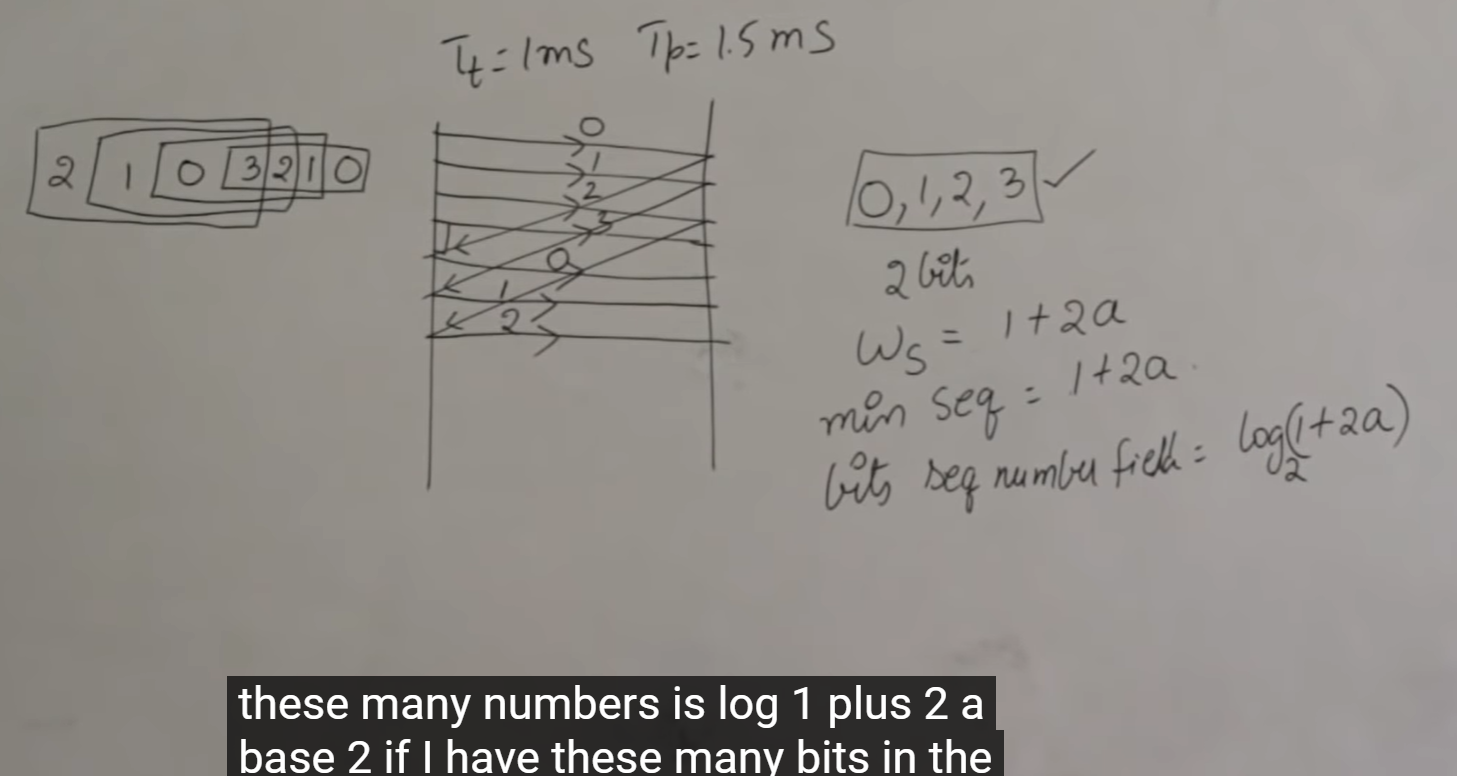 Tt = 1ms Tp = 1.5ms
2 1 0 3 2 1 0
0
1
2
3
0
1
2
0, 1, 2, 3 ✓
2 bits
ws = 1 + 2a
min seq = 1 + 2a.
bits seq number field = log2(1 + 2a)
these many numbers is log 1 plus 2 a
base 2 if I have these many bits in the